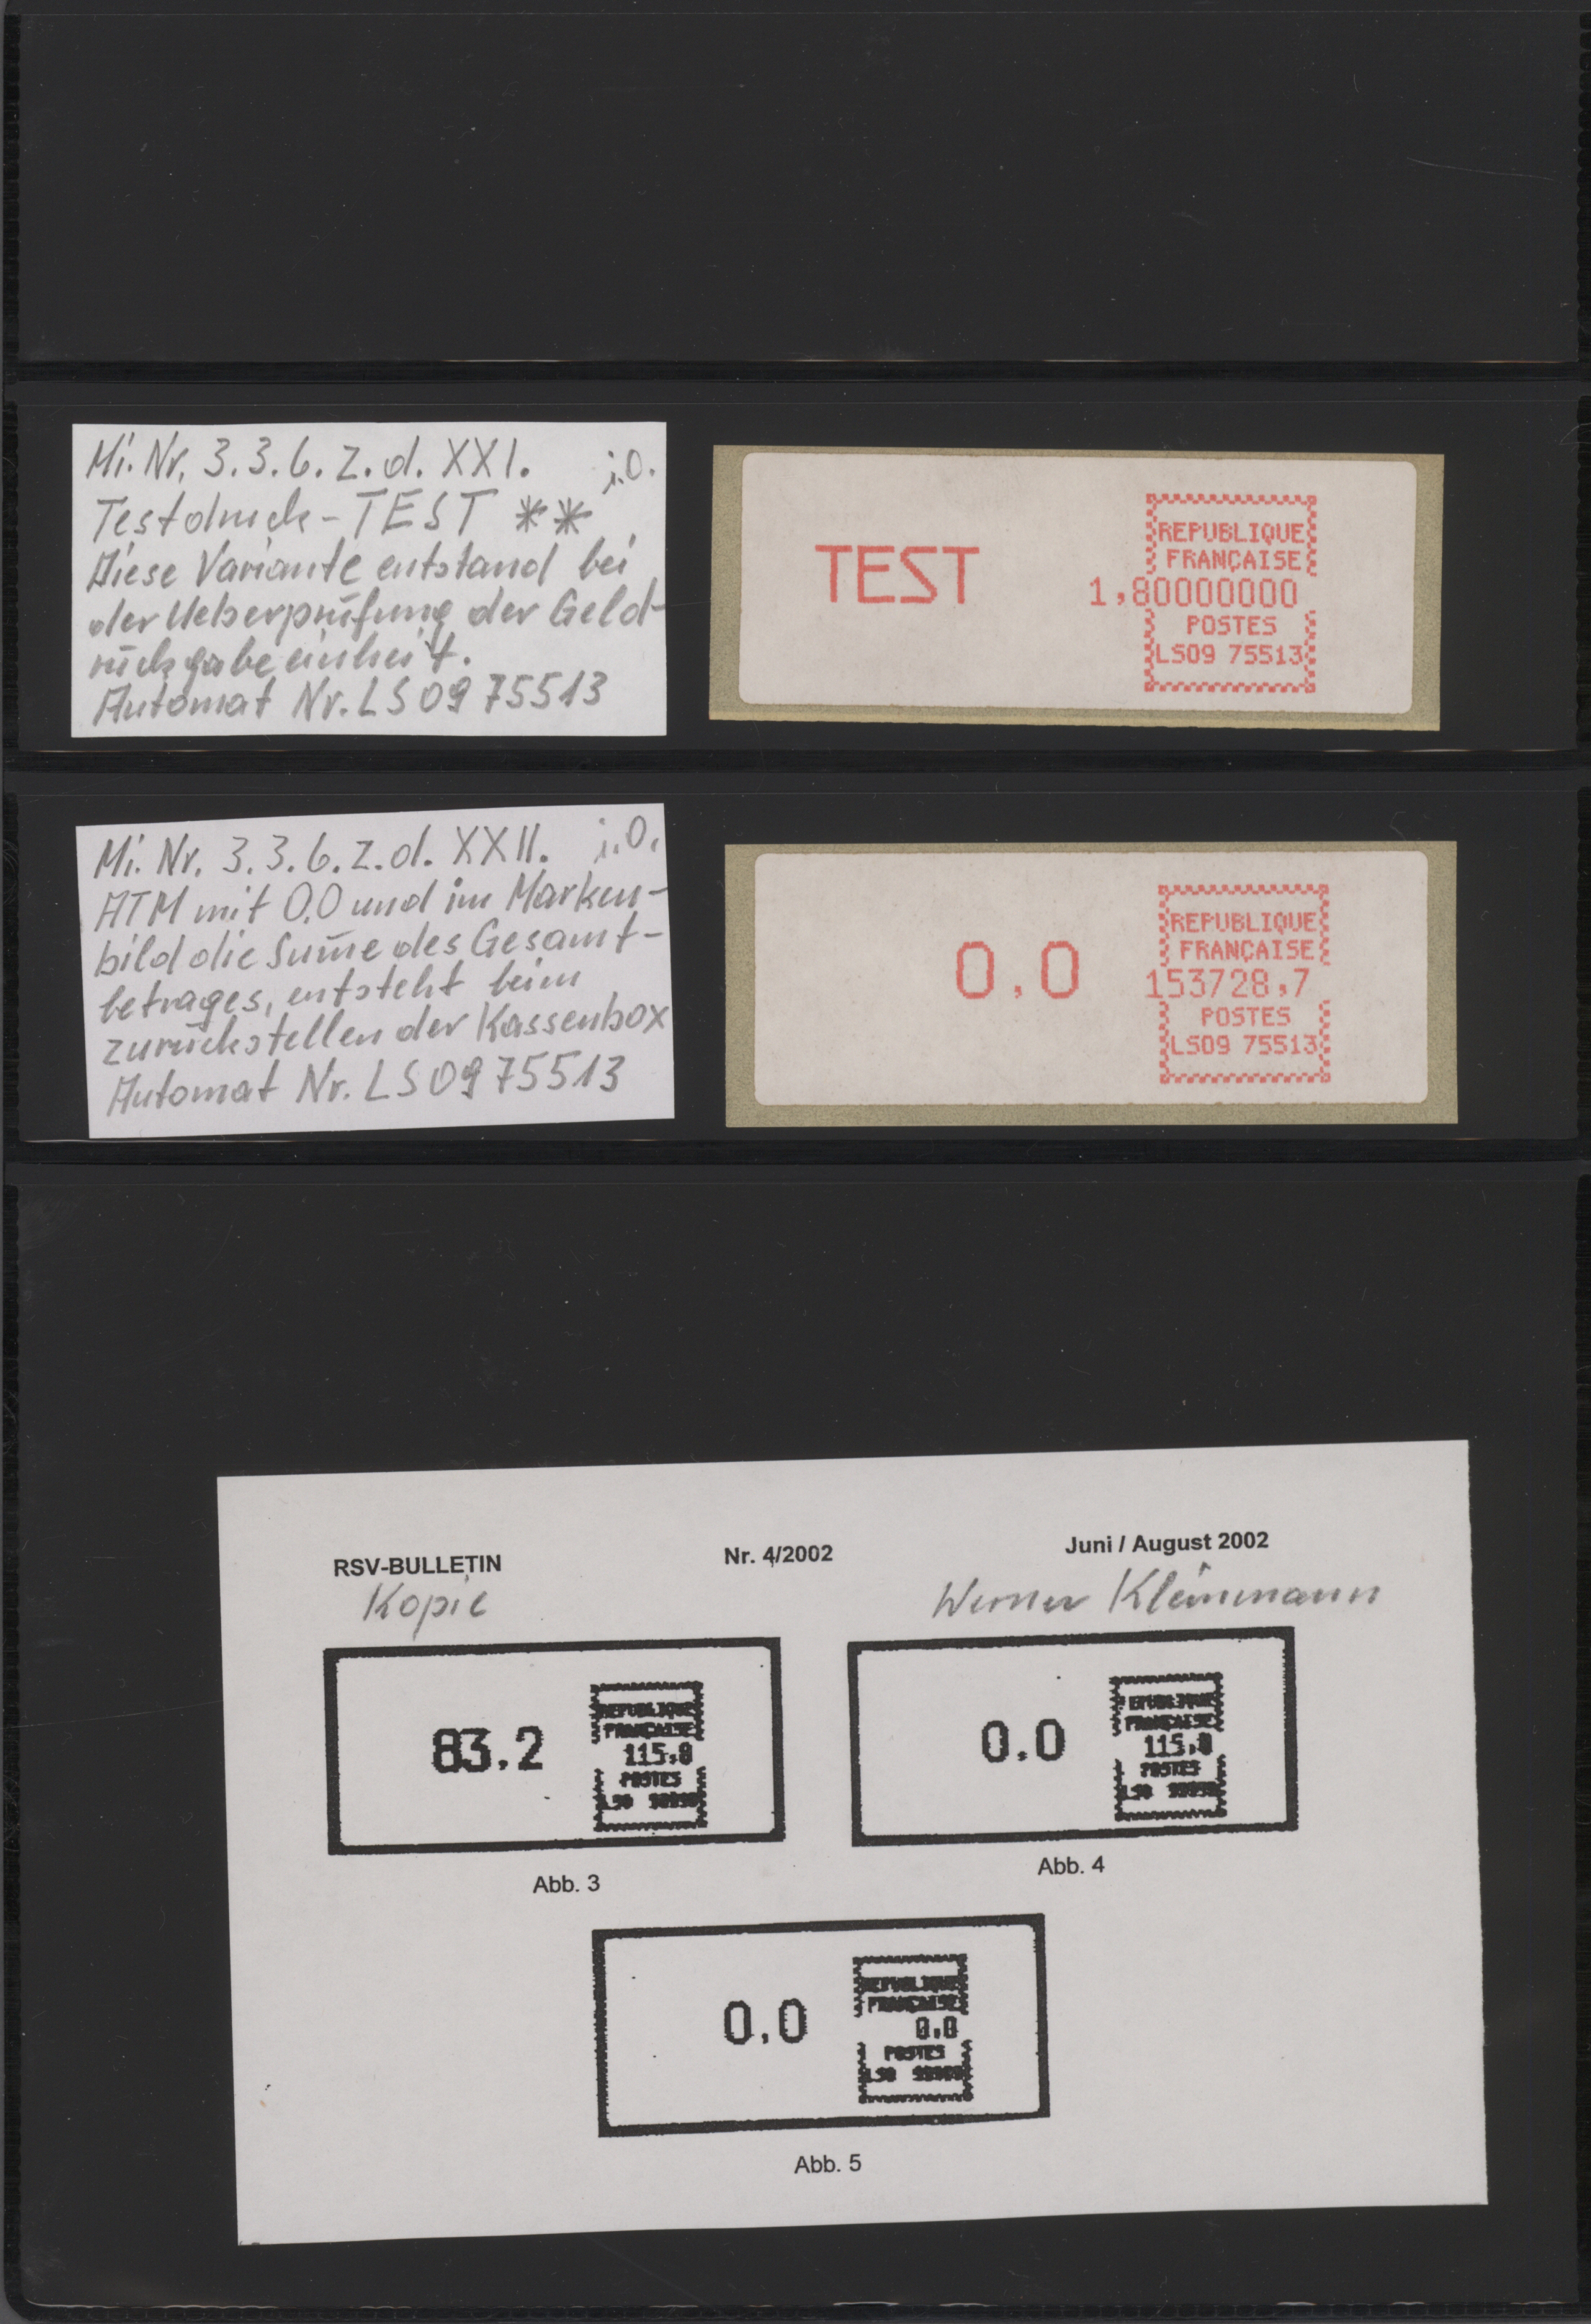 Mi. Nr. 3.3.6.Z.d. XXI. i.O.
Testdruck - TEST **
Diese Variante entstand bei
der Ueberprüfung der Geld-
rückgabeeinheit.
Automat Nr. LS09 75513
TEST
REPUBLIQUE
FRANÇAISE
1,80000000
POSTES
LS09 75513
Mi. Nr. 3.3.6.Z.d. XXII. i.O.
ATM mit 0,0 und im Marken-
bild die Sum̄e des Gesamt-
betrages, entsteht beim
zurückstellen der Kassenbox
Automat Nr. LS0975513
0,0
REPUBLIQUE
FRANÇAISE
153728,7
POSTES
LS09 75513
RSV-BULLETIN Nr. 4/2002 Juni / August 2002
Kopie Werner Kleinmann
83.2
REPUBLIQUE
FRANÇAISE
115,8
POSTES
Abb. 3
0.0
REPUBLIQUE
FRANÇAISE
115,8
POSTES
Abb. 4
0,0
REPUBLIQUE
FRANÇAISE
0,0
POSTES
Abb. 5